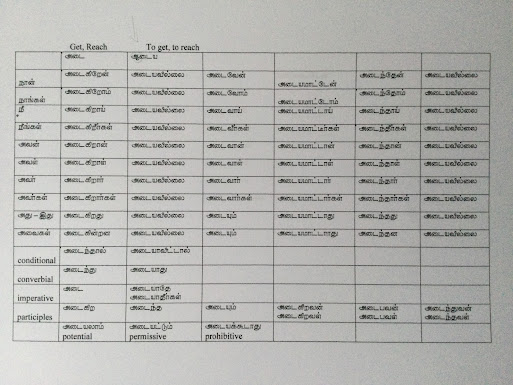 Get, Reach To get, to reach
அடை ஆடைய
நான் அடைகிறேன் அடையவில்லை அடைவேன் அடையமாட்டேன் அடைந்தேன் அடையவில்லை
நாங்கள் அடைகிறோம் அடையவில்லை அடைவோம் அடையமாட்டோம் அடைந்தோம் அடையவில்லை
நீ அடைகிறாய் அடையவில்லை அடைவாய் அடையமாட்டாய் அடைந்தாய் அடையவில்லை
நீங்கள் அடைகிறீர்கள் அடையவில்லை அடைவீர்கள் அடையமாட்டீர்கள் அடைந்தீர்கள் அடையவில்லை
அவன் அடைகிறான் அடையவில்லை அடைவான் அடையமாட்டான் அடைந்தான் அடையவில்லை
அவள் அடைகிறாள் அடையவில்லை அடைவாள் அடையமாட்டாள் அடைந்தாள் அடையவில்லை
அவர் அடைகிறார் அடையவில்லை அடைவார் அடையமாட்டார் அடைந்தார் அடையவில்லை
அவர்கள் அடைகிறார்கள் அடையவில்லை அடைவார்கள் அடையமாட்டார்கள் அடைந்தார்கள் அடையவில்லை
அது – இது அடைகிறது அடையவில்லை அடையும் அடையமாட்டாது அடைந்தது அடையவில்லை
அவைகள் அடைகின்றன அடையவில்லை அடையும் அடையமாட்டாது அடைந்தன அடையவில்லை
conditional அடைந்தால் அடையாவிட்டால்
converbial அடைந்து அடையாது
imperative அடை அடையாதே
அடையாதீர்கள்
participles அடைகிற அடைந்த அடையும் அடைகிறவன் அடைபவன் அடைந்துவன்
அடைகிறவள் அடைபவள் அடைந்தவள்
அடையலாம் அடையட்டும் அடையக்கூடாது
potential permissive prohibitive